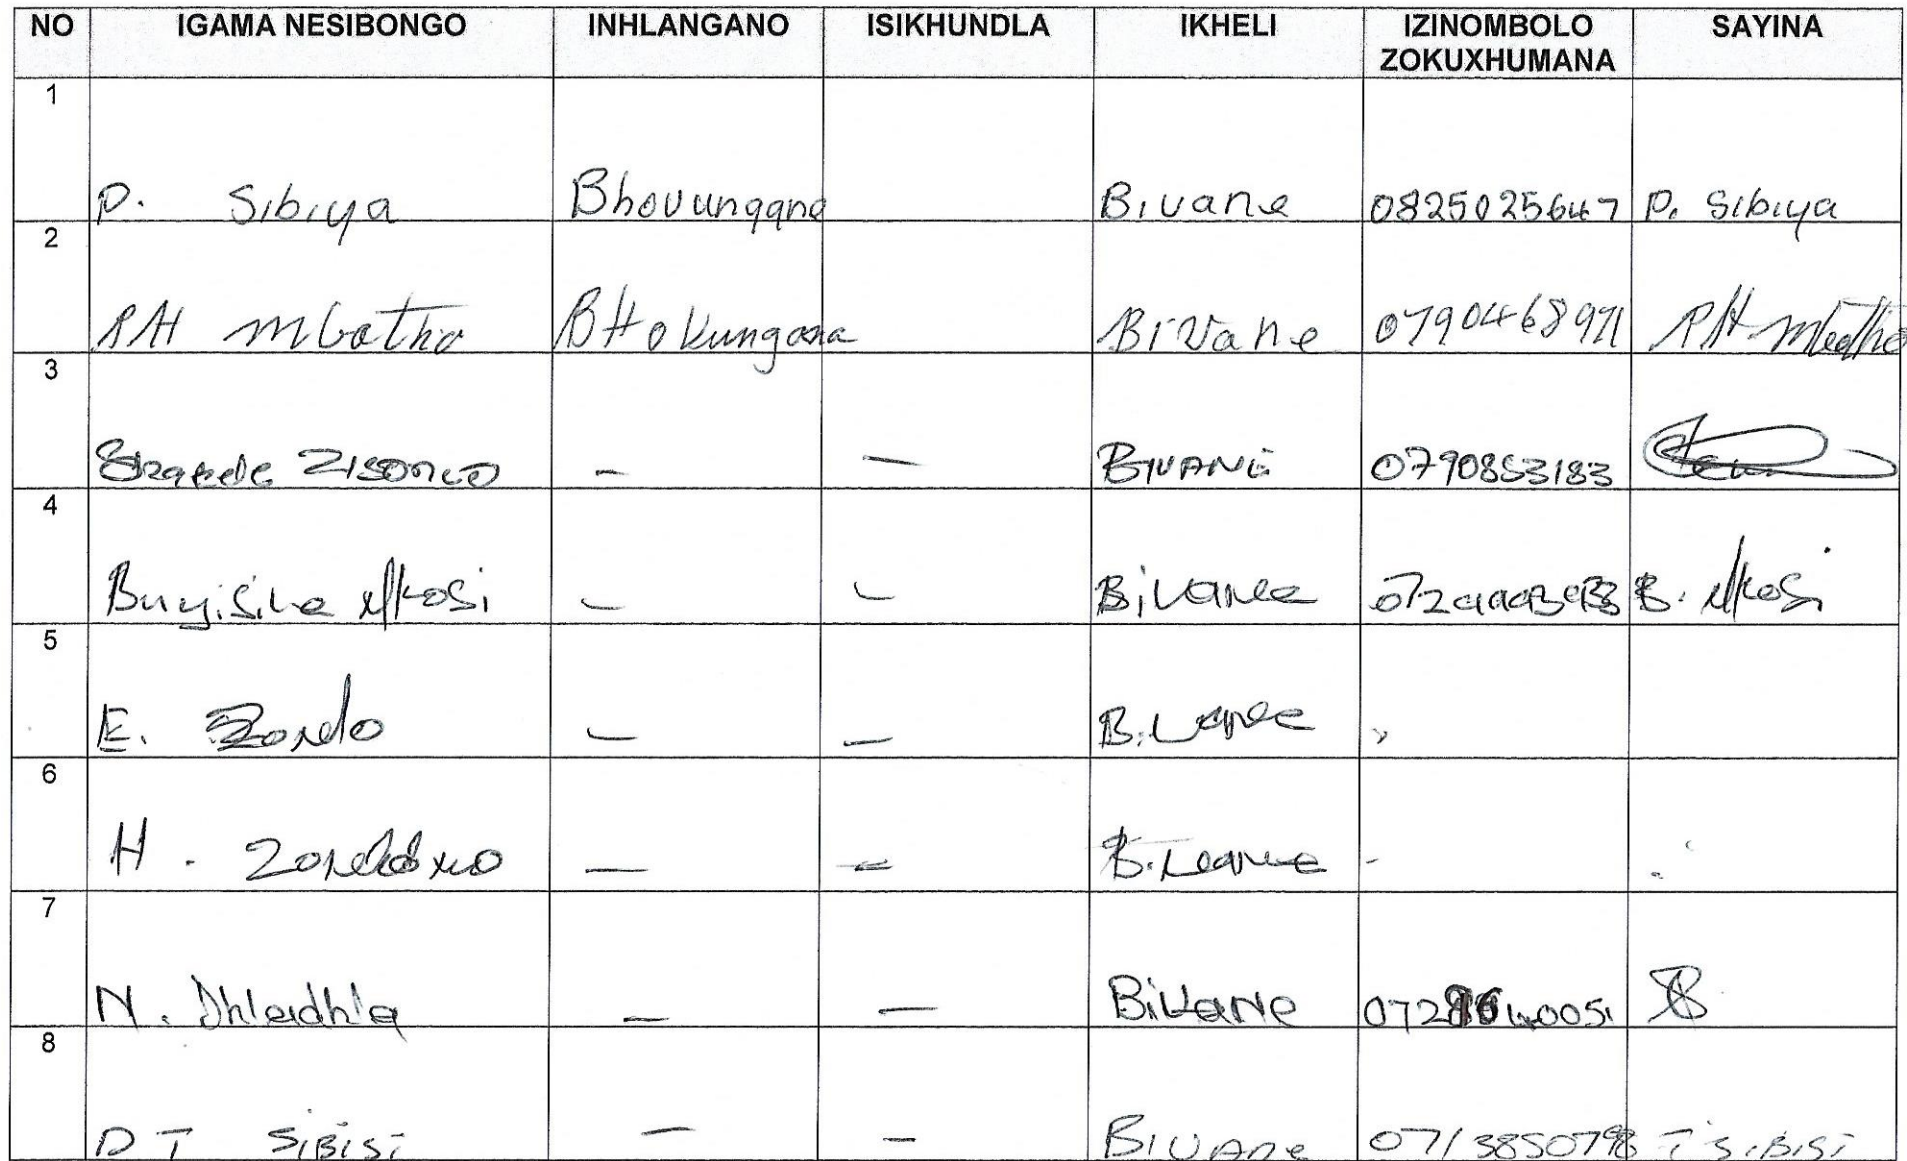 NO IGAMA NESIBONGO INHLANGANO ISIKHUNDLA IKHELI IZINOMBOLO ZOKUXHUMANA SAYINA
1 P. Sibiya Bhovungqna Bivane 0825025647 P. Sibiya
2 PH Mbatha BHokungana Bivane 0790468971 PH Mbatha
3 - - BIVANE 0790853183
4 Buyisile Nkosi - - Bivane B. Nkosi
5 E. Zondo - - Bivane
6 H. - - Bivane -
7 N. Dhladhla - - Bivane
8 D T SiBiSi - - BIVANe 0713850798 T SiBiSi